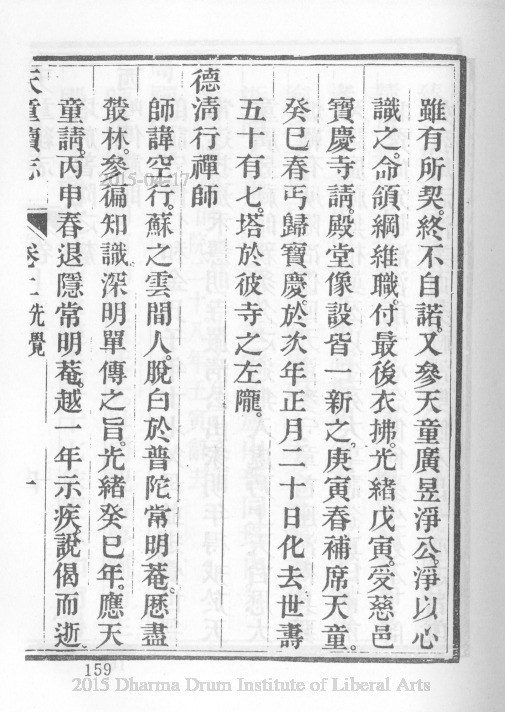 雖有所契。終不自諾。又參天童廣昱淨公。淨以心
識之。命領綱維職。付最後衣拂。光緒戊寅。受慈邑
寶慶寺請。殿堂像設皆一新之。庚寅春補席天童。
癸巳春丐歸寶慶。於次年正月二十日化去世壽
五十有七。塔於彼寺之左隴。
德清行禪師
師諱空行。蘇之雲間人。脫白於普陀常明菴。歷盡
叢林。參徧知識。深明單傳之旨。光緒癸巳年。應天
童請。丙申春退隱常明菴。越一年示疾。說偈而逝
天童續志
卷上先覺
一
159
2015 Dharma Drum Institute of Liberal Arts